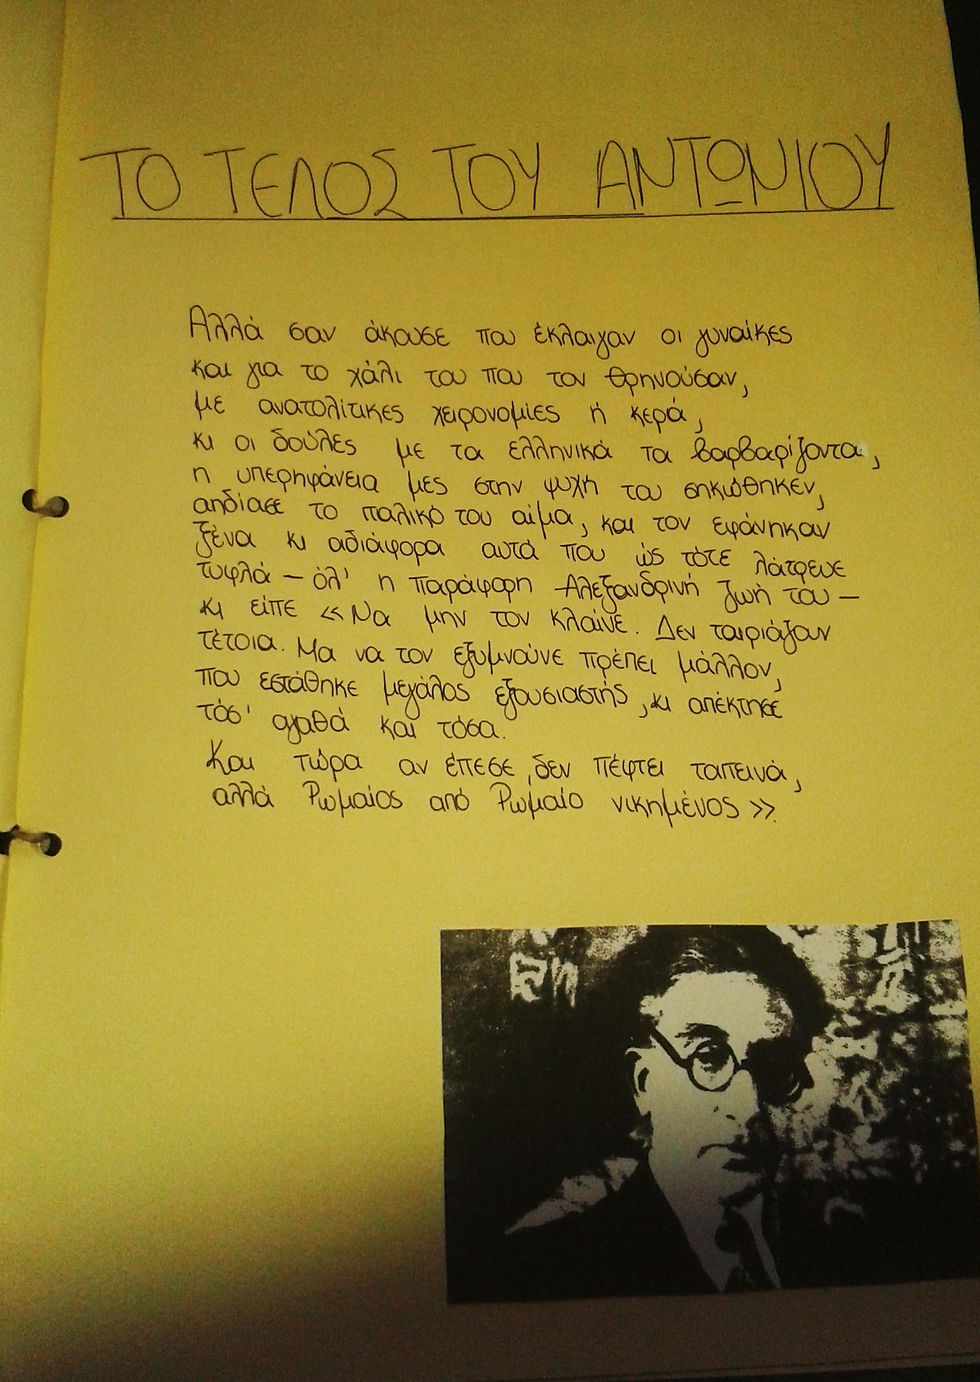 ΤΟ ΤΕΛΟΣ ΤΟΥ ΑΝΤΩΝΙΟΥ
Αλλά σαν άκουσε που έκλαιγαν οι γυναίκες
και για το χάλι του που τον θρηνούσαν,
με ανατολίτικες χειρονομίες ή κερά,
κι οι δούλες με τα ελληνικά τα βαρβαρίζοντα,
η υπερηφάνεια μες στην ψυχή του σηκώθηκεν,
αηδίασε το παλικό του αίμα, και τον εφάνηκαν
ξένα κι αδιάφορα αυτά που ώς τότε λάτρευε
τυφλά – όλ' η παράφορη Αλεξανδρινή ζωή του –
κι είπε << Να μην τον κλαίνε. Δεν ταιριάζουν
τέτοια. Μα να τον εξυμνούνε πρέπει μάλλον,
που εστάθηκε μεγάλος εξουσιαστής, κι απέκτησε
τόσ' αγαθά και τόσα.
Και τώρα αν έπεσε, δεν πέφτει ταπεινά,
αλλά Ρωμαίος από Ρωμαίο νικημένος >>.